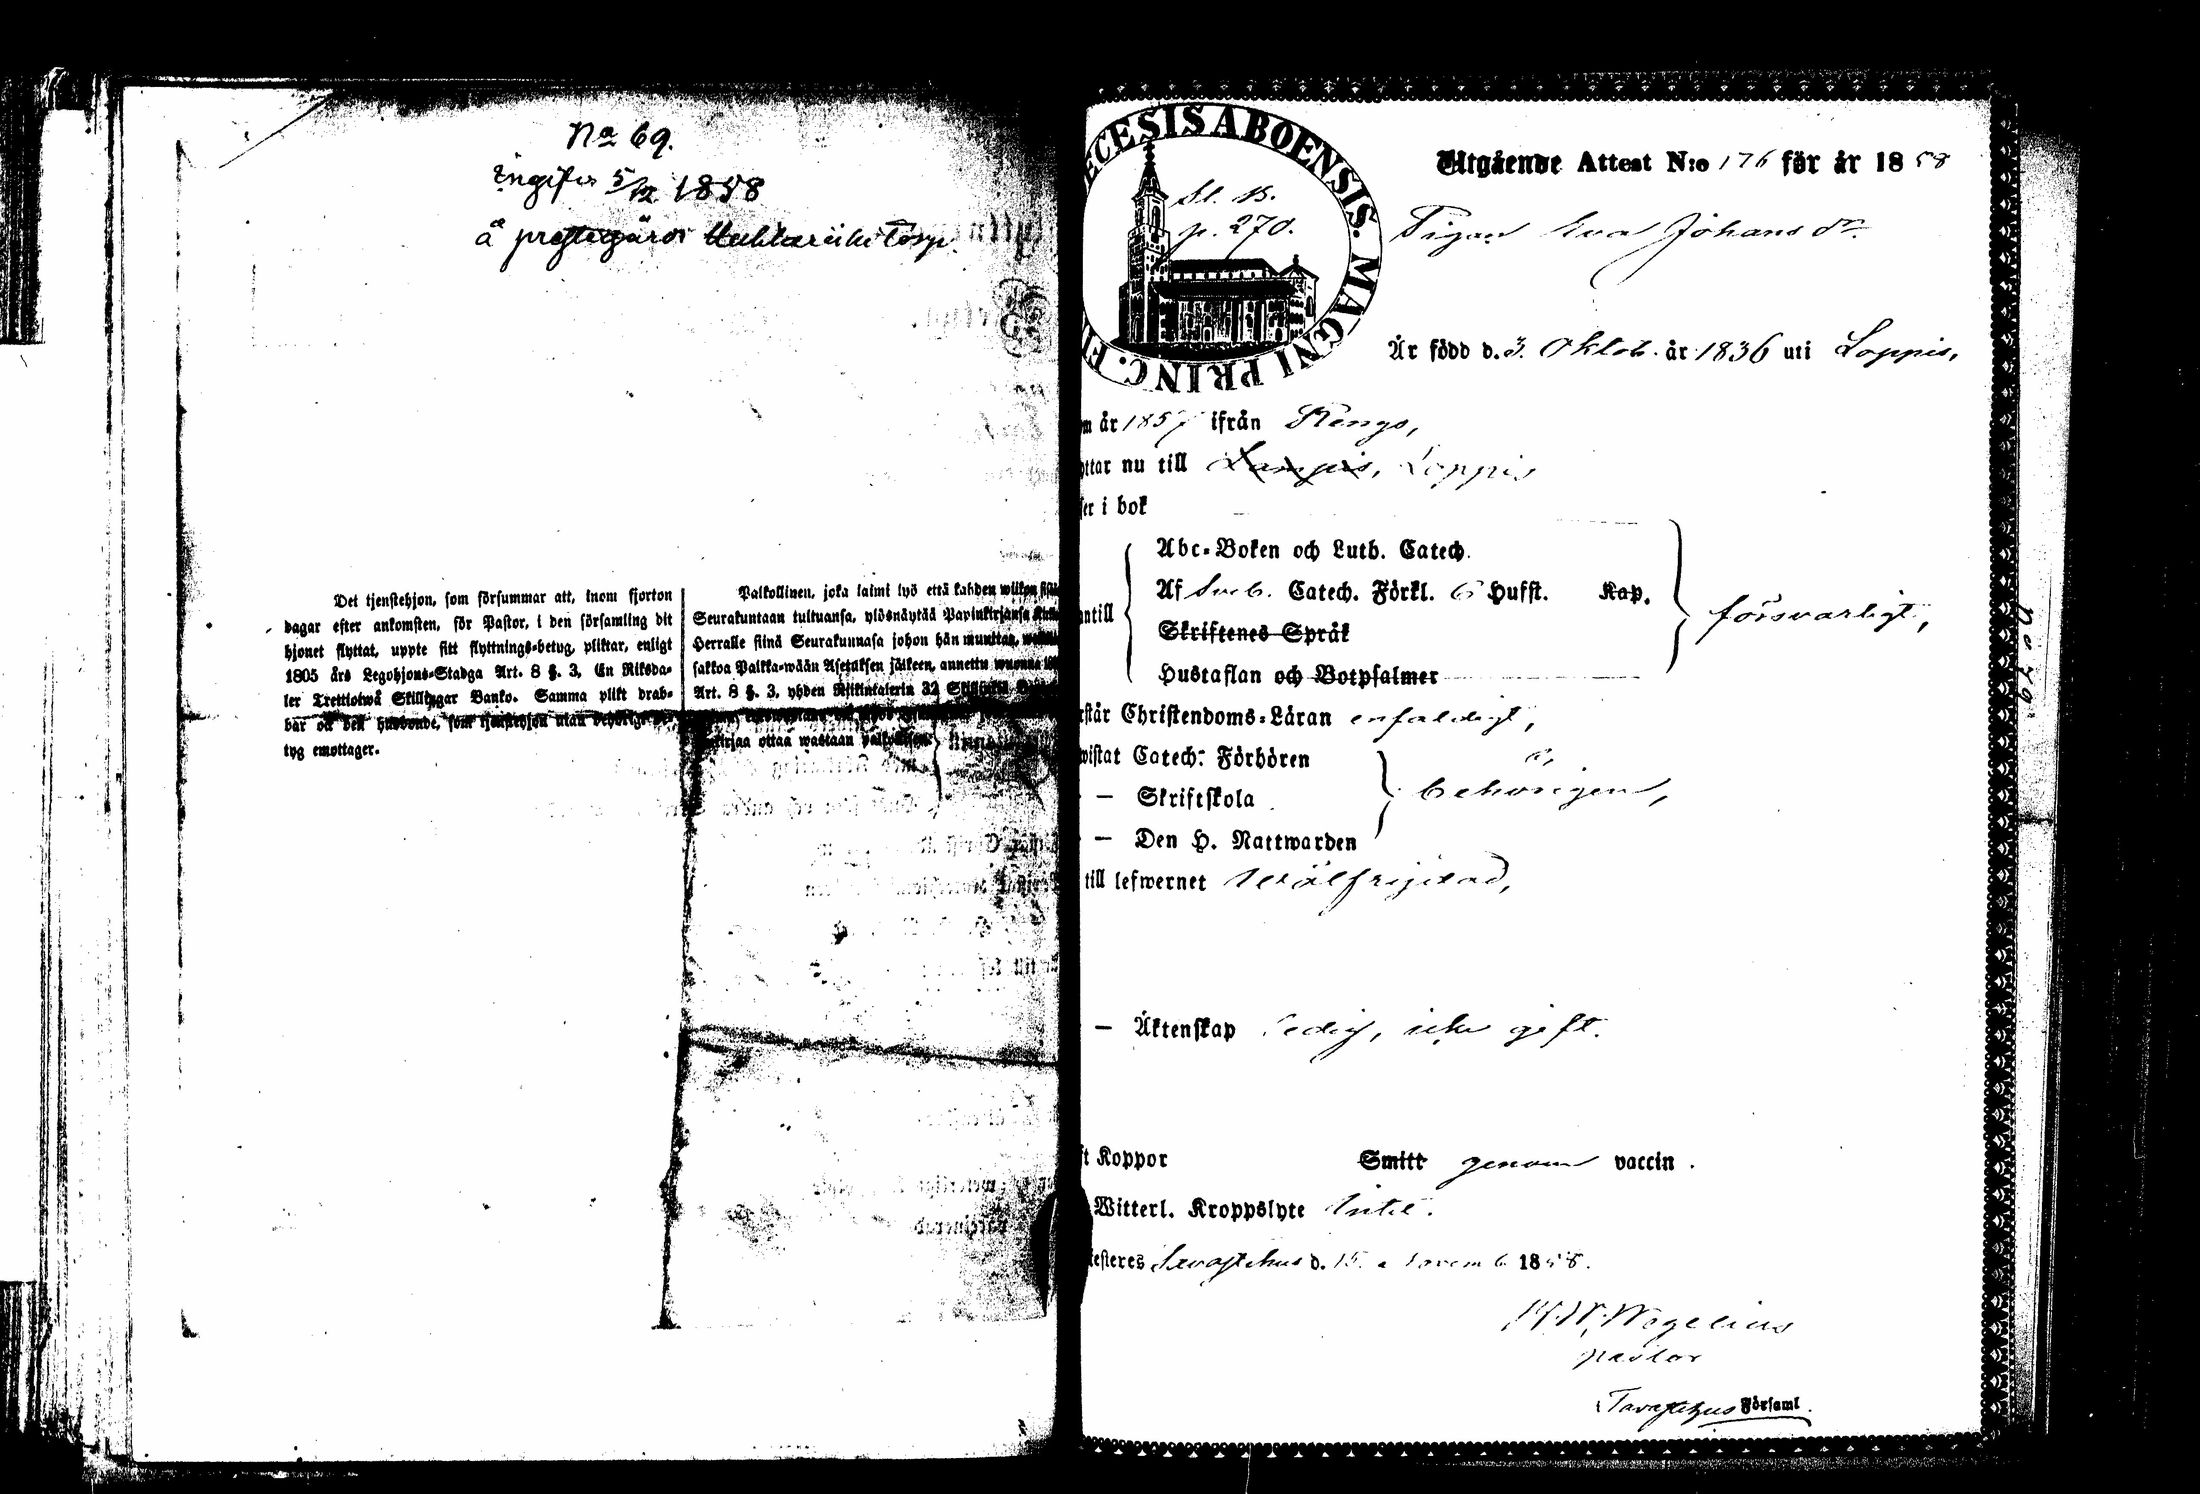 No 69.
Ingifv. 5/12 1858
å prestegårds torp.
Det tjenstehjon, som försummar att, inom fjorton
dagar efter ankomsten, för Pastor, i den församling dit
hjonet flyttat, uppte sitt flyttnings-betyg, pliktar, enligt
1805 års Legohjons-Stadga Art. 8 §. 3, En Riksda-
ler Trettiotwå Skillingar Banko. Samma plikt drab-
bar ock den husbonde, som tjenstehjon utan behörigt be-
tyg emottager.
Palkollinen, joka laimi lyö että kahden wiikon sisä
Seurakuntaan tultuansa, ylösnäyttää Papinkirjansa
Herralle siinä Seurakunnasa johon hän muuttaa,
sakkoa Palkka-wään Asetuksen jälkeen, annettu wuonna
Art. 8 §. 3, yhden Riikintalerin 32
kirjaa ottaa wastaan palkollisen.
ECESIS ABOENSIS. MAGNI PRINC. FI
St. B.
p. 270.
Utgående Attest N:o 176 för år 1858
Pigan Eva Johansdr.
Är född d. 3. Oktob. år 1836 uti Loppis,
m år 1857 ifrån Rengo,
ttar nu till Lampis, Loppis
er i bok
antill
Abc-Boken och Luth. Catech.
Af Sveb. Catech. Förkl. 6 Hufst. Kap.
Skriftenes Språk
Hustaflan och Botpsalmer
försvarligt,
rstår Christendoms-Läran enfaldigt,
wistat Catech: Förhören
— Skriftskola
— Den H. Nattwarden
behörigen,
till lefwernet Wälfrejdad,
— Äktenskap ledig, icke gift.
ft Koppor Smitt genom vaccin.
Witterl. Kroppslyte Intet.
testeres Tavastehus d. 15. Novemb. 1858.
Wegelius
Pastor
Tavastehus Församl.
No 69